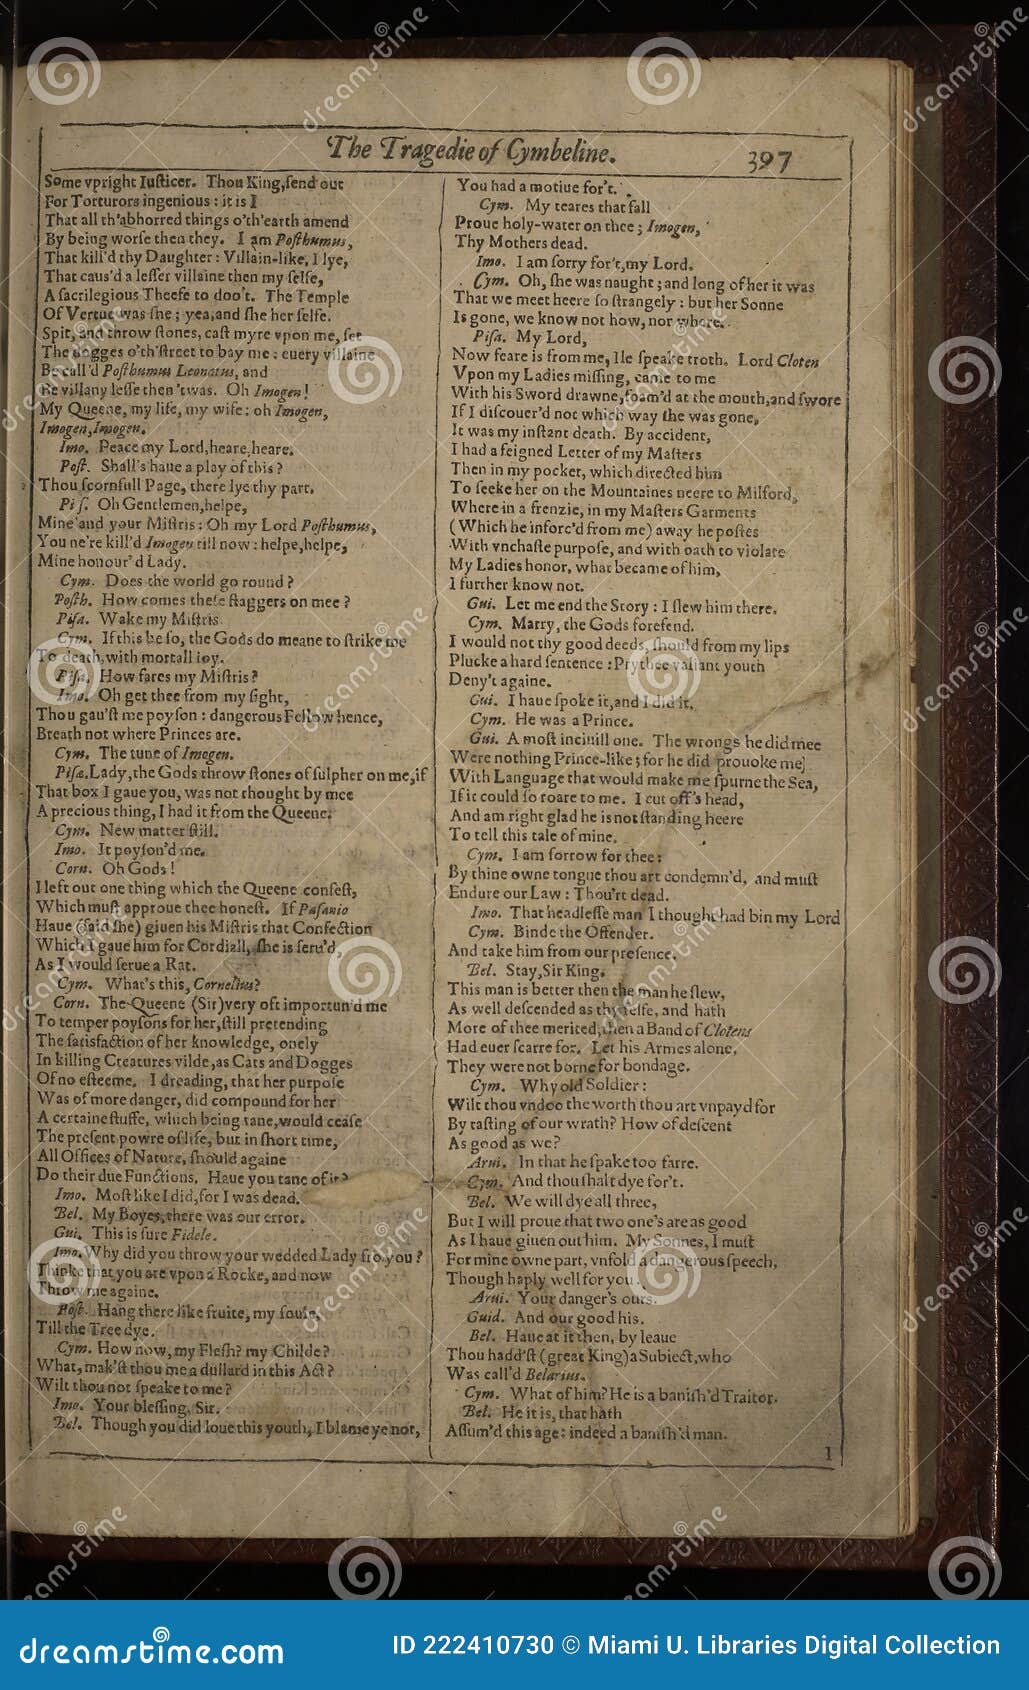 The Tragedie of Cymbeline. 397
Some vpright Iuſticer. Thou King, ſend out
For Torturors ingenious: it is I
That all th'abhorred things o'th'earth amend
By being worſe then they. I am Poſthumus,
That kill'd thy Daughter: Villain-like, I lye,
That caus'd a leſſer villaine then my ſelfe,
A ſacrilegious Theefe to doo't. The Temple
Of Vertue was ſhe; yea, and ſhe her ſelfe.
Spit, and throw ſtones, caſt myre vpon me, ſet
The dogges o'th'ſtreet to bay me: euery villaine
Be call'd Poſthumus Leonatus, and
Be villany leſſe then 'twas. Oh Imogen!
My Queene, my life, my wife: oh Imogen,
Imogen, Imogen.
Imo. Peace my Lord, heare, heare.
Poſt. Shall's haue a play of this?
Thou ſcornfull Page, there lye thy part.
Piſ. Oh Gentlemen, helpe,
Mine and your Miſtris: Oh my Lord Poſthumus,
You ne're kill'd Imogen till now: helpe, helpe,
Mine honour'd Lady.
Cym. Does the world go round?
Poſth. How comes theſe ſtaggers on mee?
Piſa. Wake my Miſtris.
Cym. If this be ſo, the Gods do meane to ſtrike me
To death, with mortall ioy.
Piſa. How fares my Miſtris?
Imo. Oh get thee from my ſight,
Thou gau'ſt me poyſon: dangerous Fellow hence,
Breath not where Princes are.
Cym. The tune of Imogen.
Piſa. Lady, the Gods throw ſtones of ſulpher on me, if
That box I gaue you, was not thought by mee
A precious thing, I had it from the Queene.
Cym. New matter ſtill.
Imo. It poyſon'd me.
Corn. Oh Gods!
I left out one thing which the Queene confeſt,
Which muſt approue thee honeſt. If Paſanio
Haue (ſaid ſhe) giuen his Miſtris that Confection
Which I gaue him for Cordiall, ſhe is ſeru'd,
As I would ſerue a Rat.
Cym. What's this, Cornelius?
Corn. The Queene (Sir) very oft importun'd me
To temper poyſons for her, ſtill pretending
The ſatisfaction of her knowledge, onely
In killing Creatures vilde, as Cats and Dogges
Of no eſteeme. I dreading, that her purpoſe
Was of more danger, did compound for her
A certaine ſtuffe, which being tane, would ceaſe
The preſent powre of life, but in ſhort time,
All Offices of Nature, ſhould againe
Do their due Functions. Haue you tane of it?
Imo. Moſt like I did, for I was dead.
Bel. My Boyes, there was our error.
Gui. This is ſure Fidele.
Imo. Why did you throw your wedded Lady fro you?
Thinke that you are vpon a Rocke, and now
Throw me againe.
Poſt. Hang there like fruite, my ſoule,
Till the Tree dye.
Cym. How now, my Fleſh? my Childe?
What, mak'ſt thou me a dullard in this Act?
Wilt thou not ſpeake to me?
Imo. Your bleſſing, Sir.
Bel. Though you did loue this youth, I blame ye not,
You had a motiue for't.
Cym. My teares that fall
Proue holy-water on thee; Imogen,
Thy Mothers dead.
Imo. I am ſorry for't, my Lord.
Cym. Oh, ſhe was naught; and long of her it was
That we meet heere ſo ſtrangely: but her Sonne
Is gone, we know not how, nor where.
Piſa. My Lord,
Now feare is from me, Ile ſpeake troth. Lord Cloten
Vpon my Ladies miſſing, came to me
With his Sword drawne, foam'd at the mouth, and ſwore
If I diſcouer'd not which way ſhe was gone,
It was my inſtant death. By accident,
I had a feigned Letter of my Maſters
Then in my pocket, which directed him
To ſeeke her on the Mountaines neere to Milford,
Where in a frenzie, in my Maſters Garments
(Which he inforc'd from me) away he poſtes
With vnchaſte purpoſe, and with oath to violate
My Ladies honor, what became of him,
I further know not.
Gui. Let me end the Story: I ſlew him there.
Cym. Marry, the Gods forefend.
I would not thy good deeds, ſhould from my lips
Plucke a hard ſentence: Prythee valiant youth
Deny't againe.
Gui. I haue ſpoke it, and I did it.
Cym. He was a Prince.
Gui. A moſt inciuill one. The wrongs he did mee
Were nothing Prince-like; for he did prouoke me
With Language that would make me ſpurne the Sea,
If it could ſo roare to me. I cut off's head,
And am right glad he is not ſtanding heere
To tell this tale of mine.
Cym. I am ſorrow for thee:
By thine owne tongue thou art condemn'd, and muſt
Endure our Law: Thou'rt dead.
Imo. That headleſſe man I thought had bin my Lord
Cym. Binde the Offender,
And take him from our preſence.
Bel. Stay, Sir King.
This man is better then the man he ſlew,
As well deſcended as thy ſelfe, and hath
More of thee merited, then a Band of Clotens
Had euer ſcarre for. Let his Armes alone,
They were not borne for bondage.
Cym. Why old Soldier:
Wilt thou vndoo the worth thou art vnpayd for
By taſting of our wrath? How of deſcent
As good as we?
Arui. In that he ſpake too farre.
Cym. And thou ſhalt dye for't.
Bel. We will dye all three,
But I will proue that two one's are as good
As I haue giuen out him. My Sonnes, I muſt
For mine owne part, vnfold a dangerous ſpeech,
Though haply well for you.
Arui. Your danger's ours.
Guid. And our good his.
Bel. Haue at it then, by leaue
Thou hadd'ſt (great King) a Subiect, who
Was call'd Belarius.
Cym. What of him? He is a baniſh'd Traitor.
Bel. He it is, that hath
Aſſum'd this age: indeed a baniſh'd man.
I
dreamstime.com
ID 222410730 © Miami U. Libraries Digital Collection